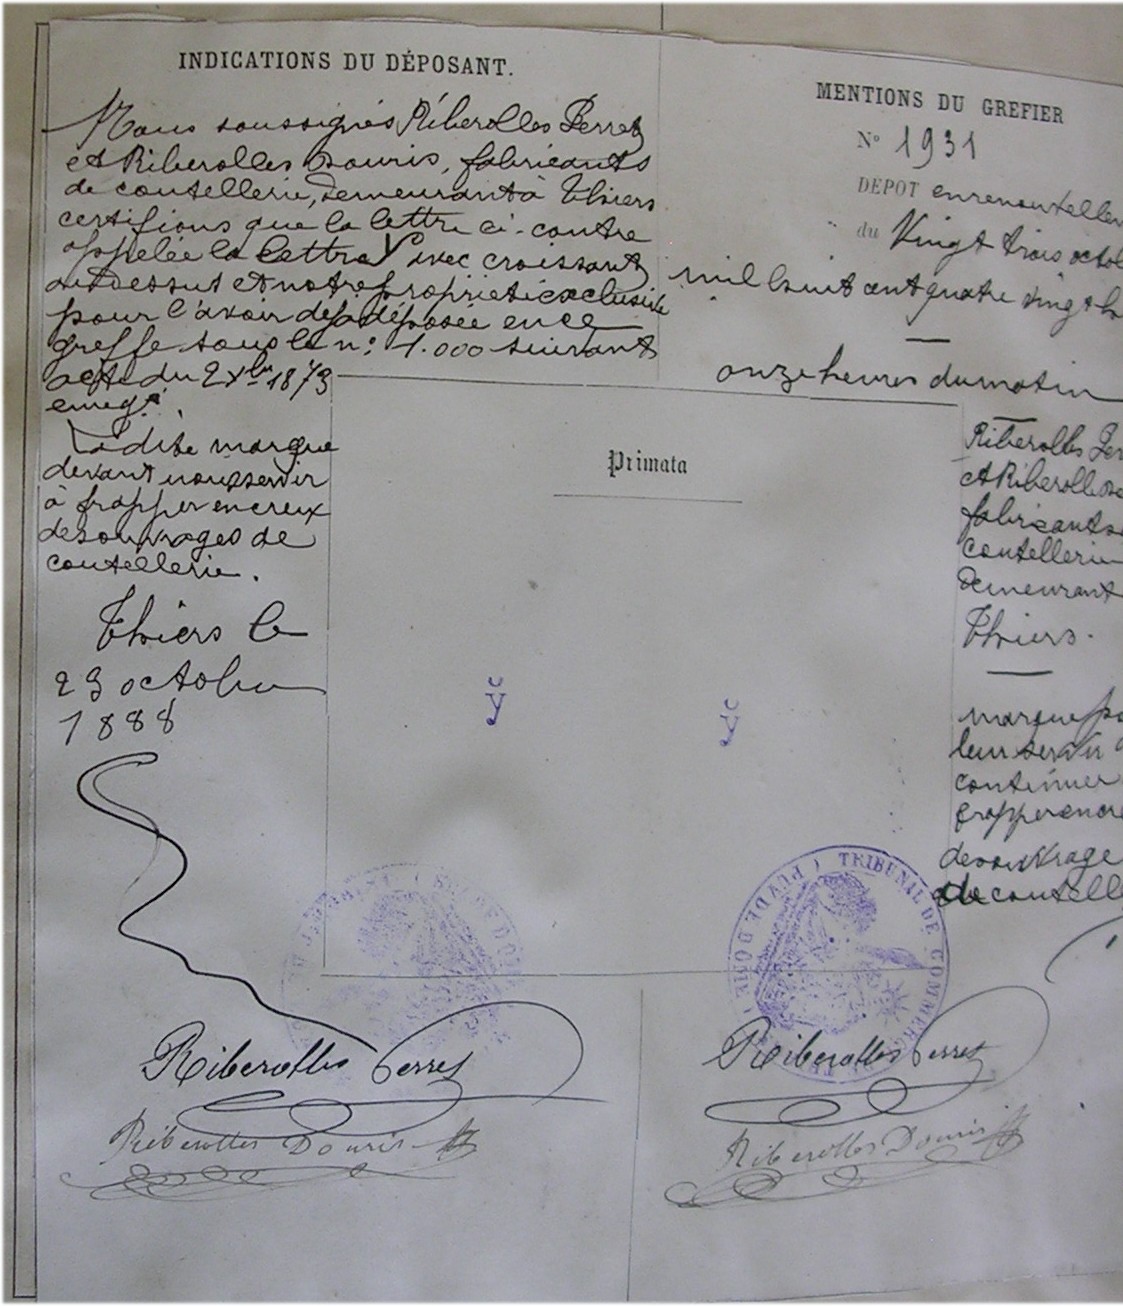 INDICATIONS DU DÉPOSANT.
Nous soussignés Riberolles Perret
et Riberolles Douris, fabricants
de coutellerie, demeurant à Thiers
certifions que la lettre ci-contre
appelée la lettre Y avec croissant
au dessus et notre propriété exclusive
pour l'avoir déjà déposée en ce
greffe sous le n° 1.000 suivant
acte du 2 Xbre 1873
enregt.
La dite marque
devant nous servir
à frapper en creux
des ouvrages de
coutellerie.
Thiers le
23 octobre
1888
MENTIONS DU GREFIER
N° 1931
DÉPOT en renouvellem
du Vingt trois octob
mil huit cent quatre vingt h
onze heures du matin
Primata
Riberolles Per
et Riberolles
fabricants
coutellerie
demeurant
Thiers.
marque po
leur servir
continuer
frapper en cre
des ouvrage
de coutell
y
y
TRIBUNAL DE COMMERCE
PUY DE DOME
Riberolles Perret
Riberolles Douris
Riberolles Perret
Riberolles Douris